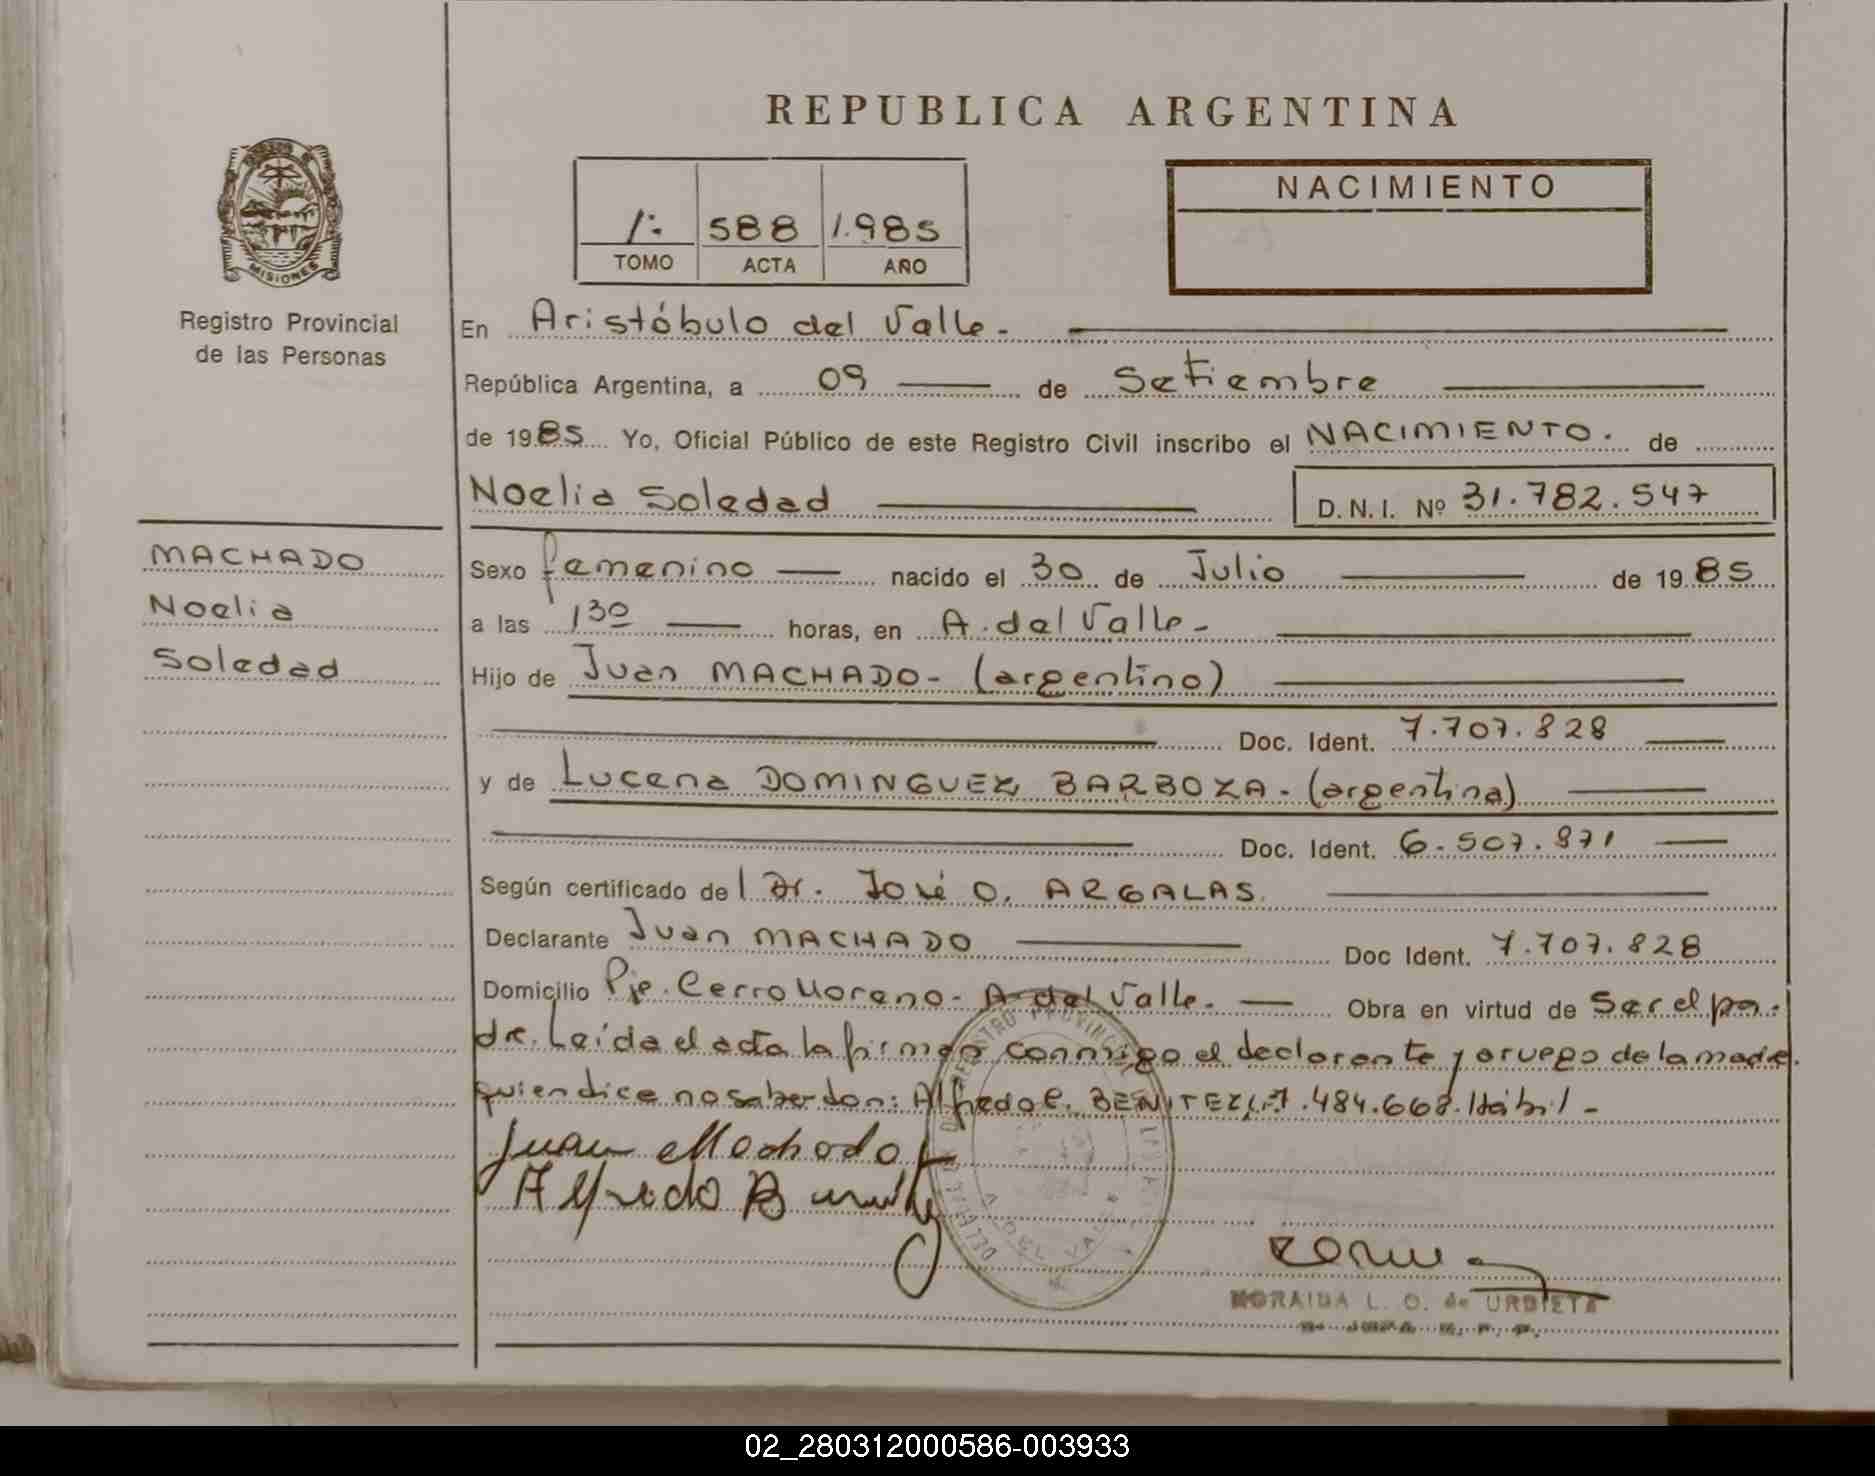 REPUBLICA ARGENTINA
MISIONES
Registro Provincial
de las Personas
1: 588 1.985
TOMO ACTA AÑO
NACIMIENTO
En Aristóbulo del Valle.-
República Argentina, a 09 de Setiembre
de 1985 Yo, Oficial Público de este Registro Civil inscribo el NACIMIENTO. de
Noelia Soledad D.N.I. Nº 31.782.547
MACHADO
Noelia
Soledad
Sexo femenino nacido el 30 de Julio de 1985
a las 1 30 horas, en A. del Valle-
Hijo de Juan MACHADO- (argentino)
Doc. Ident. 7.707.828
y de Lucena DOMINGUEZ BARBOZA.- (argentina)
Doc. Ident. 6.507.871
Según certificado del Dr. José O. ARGALAS.
Declarante Juan MACHADO Doc Ident. 7.707.828
Domicilio Pje. Cerro Moreno- A del Valle. Obra en virtud de Ser el pa-
dre. Leída el acta la firman conmigo el declarante y a ruego de la madre
quien dice no saber don: Alfredo C. BENITEZ 484.668. Hábil-
Juan Machado
Alfredo B
REGISTRO PROVINCIAL
A. DEL VALLE
MORAIDA L. O. de URBIETA
02_280312000586-003933